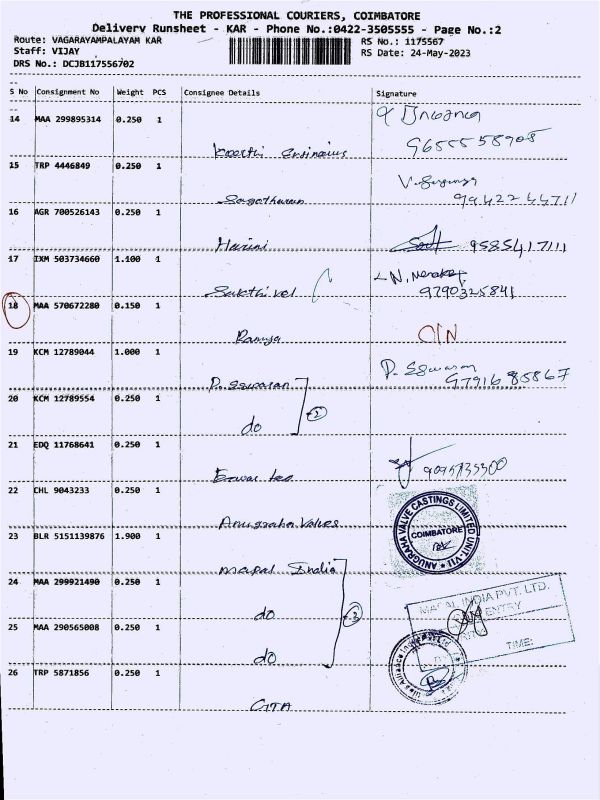 THE PROFESSIONAL COURIERS, COIMBATORE
Delivery Runsheet - KAR - Phone No.:0422-3505555 - Page No.:2
Route: VAGARAYAMPALAYAM KAR
RS No.: 1175567
Staff: VIJAY
RS Date: 24-May-2023
DRS No.: DCJB117556702
S No Consignment No Weight PCS Consignee Details Signature
14 MAA 299895314 0.250 1
9655558908
15 TRP 4446849 0.250 1
9942244711
16 AGR 700526143 0.250 1
Harini 9585417111
17 IXM 503734660 1.100 1
Sakthi vel 9790325841
18 MAA 570672280 0.150 1
Ramya C/N
19 KCM 12789044 1.000 1
P. Eswaran P. Eswaran 9791685867
20 KCM 12789554 0.250 1
do 2
21 EDQ 11768641 0.250 1
22 CHL 9043233 0.250 1
Anugraha Valves
ANUGRAHA VALVE CASTINGS LIMITED UNIT-VII
COIMBATORE
23 BLR 5151139876 1.900 1
Mapal India
24 MAA 299921490 0.250 1
do 3
MAPAL INDIA PVT. LTD.
ENTRY
TIME:
25 MAA 290565008 0.250 1
do
26 TRP 5871856 0.250 1
GTA